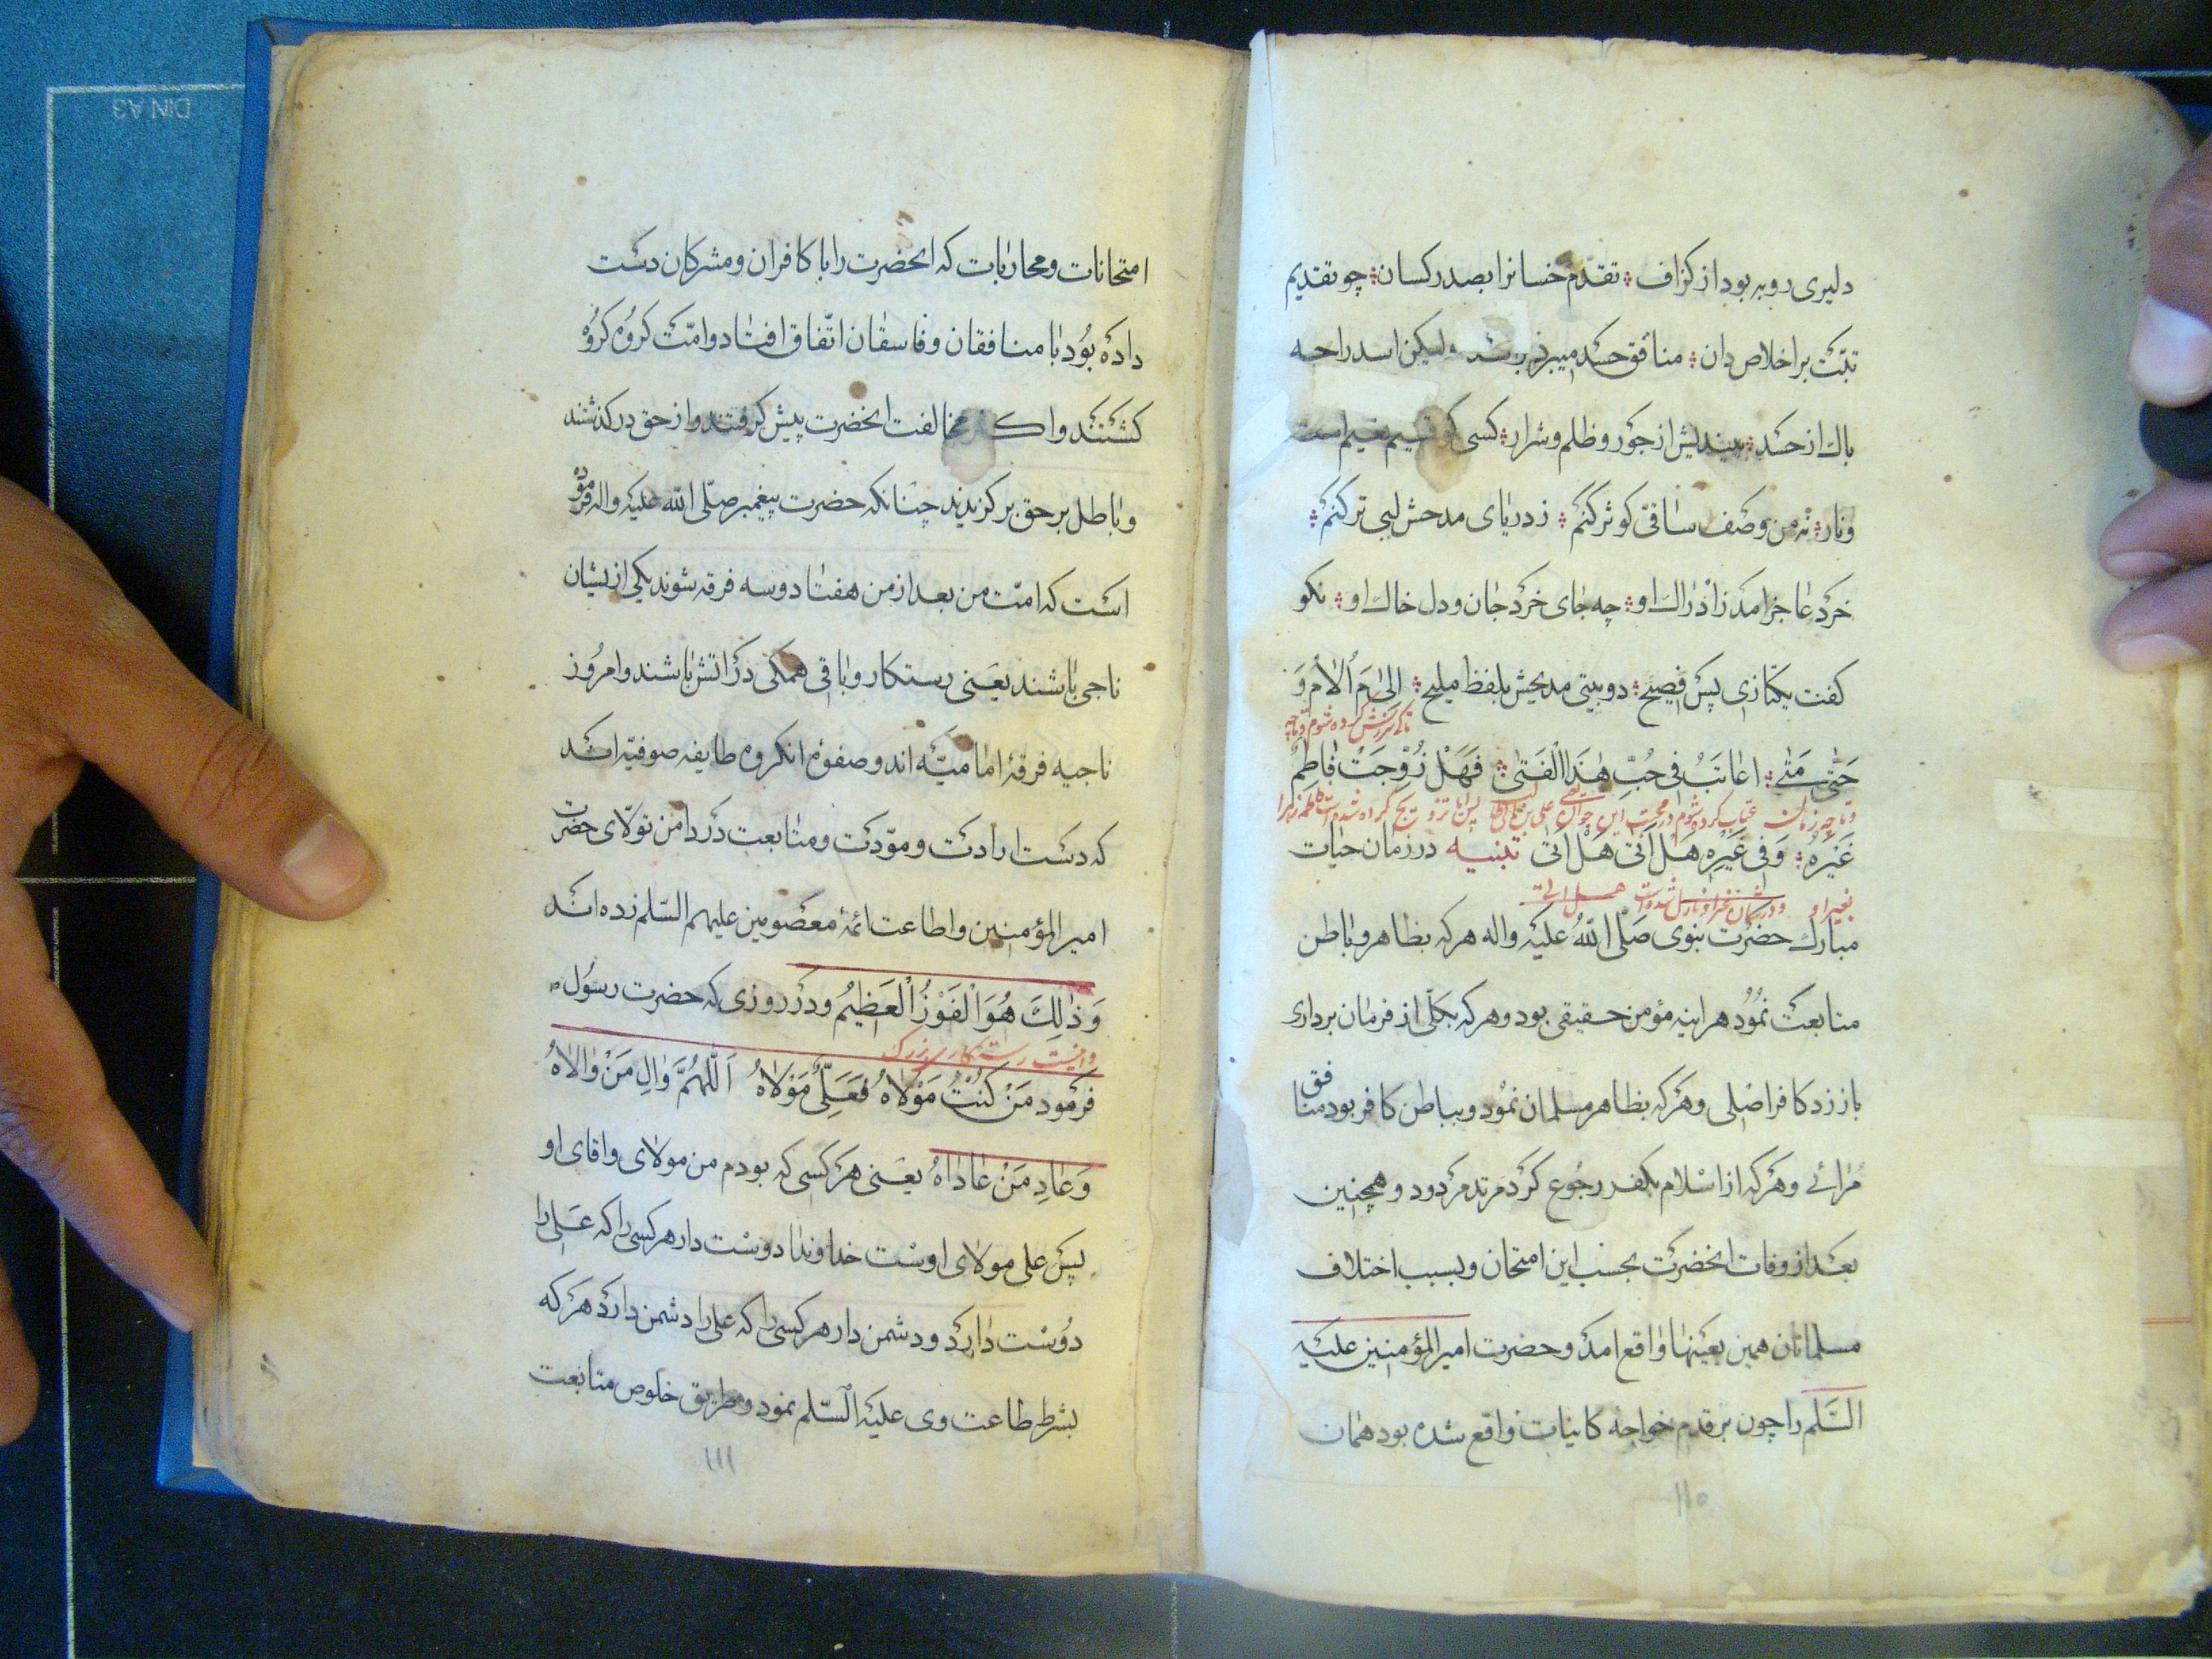 دلیری روبه بود از کزاف ؞ تقدم خسانرا بصدر کسان ؞ چو تقدیم
تبّت بر اخلاص دان ؞ منافق حسد میبرد ولیکن اسد را چه
باك از حسد ؞ میندیش از جور و ظلم و شرار ؞ کسی کو قسیم نعیم است
و نار ؞ نه من وصف ساقیّ کوثر کنم ؞ ز دریای مدحش لبی تر کنم ؞
خرد عاجز امد ز ادراك او ؞ چه جای خرد جان و دل خاك او ؞ نکو
کفت یکتازی پس فصیح ؞ دو بیتی مدیحش بلفظ ملیح ؞ اِلیٰ مَ اُلٰامُ وَ
تاکی سرزنش کرده شوم و تا چه
حَتّٰی مَتٰی ؞ اعاتَبُ فی حُبِّ هٰذَا الْفَتیٰ ؞ فَهَلْ زُوِّجَتْ فٰاطِمٌ
و تا چه زمان عتاب کرده شوم در محبت این جوان علی بن ابی طالب پس ایا تزویج کرده شده است فاطمه زهرا
غَیْرَهُ ؞ وَفی غَیْرِهِ هَلْ اَتیٰ هَلْ اَتیٰ تنبیه در زمان حیات
بغیر او و در شان غیر او نازل شده است هل اتی
مبارك حضرت نبوی صَلّی اللّٰهُ علیه واله هر که بظاهر و باطن
متابعت نمُود هراینه مؤمن حقیقی بود و هر که بکلّی از فرمان برداری
باز زد کافر اصلی و هر که بظاهر مسلمان نمُود و بباطن کافر بود منافق
مُرائی و هر که از اسلام بکفر رجُوع کرد مرتد مردود و همچنین
بعد از وفات انحضرت بحسب این امتحان و بسبب اختلاف
مسلمانان همین بعینها واقع امد و حضرت امیر المؤمنین علیه
السّلم را چون بر قدم خواجه کاینات واقع شده بود همان
۱۱۰
امتحانات و محاربات که انحضرت را با کافران و مشرکان دست
داده بُود با منافقان و فاسقان اتّفاق افتاد و امّت کروُه کروُه
کشتند و اکثر مخالفت انحضرت پیش کرفتند و از حق درکذشتند
و باطل بر حق برکزیدند چنانکه حضرت پیغمبر صلّی اللّه علیه واله فرموده
است که امّت من بعد از من هفتاد و سه فرقه شوند یکی از ایشان
ناجی باشند یعنی رستکار و باقی همکی در اتش باشند و امرُوز
ناجیه فرقۀ امامیّه اند و صفوۀ انکروه طایفه صوفیّه اند
که دست ارادت و مودّت و متابعت در دامن تولّای حضرت
امیر المؤمنین و اطاعت ائمۀ معصُومین علیهم السّلم زده اند
وَ ذٰلِكَ هُوَ الْفَوْزُ الْعَظِیْمُ و در روزی که حضرت رسُول ص
و اینست رستکاری بزرك
فرمود مَنْ کُنْتُ مَوْلاهُ فَعَلِیٌّ مَوْلاهُ اَللّٰهُمَّ وٰالِ مَنْ وٰالاهُ
وَ عٰادِ مَنْ عٰادٰاهُ یعنی هر کسی که بودم من مولای و اقای او
پس علی مولای اوست خداوندا دوست دار هر کسی را که علی را
دُوست دارد و دشمن دار هر کسی را که علی را دشمن دارد هر که
بشرط طاعت وی علیه السّلم نمود و بطریق خلوص متابعت
۱۱۱
DIN A3